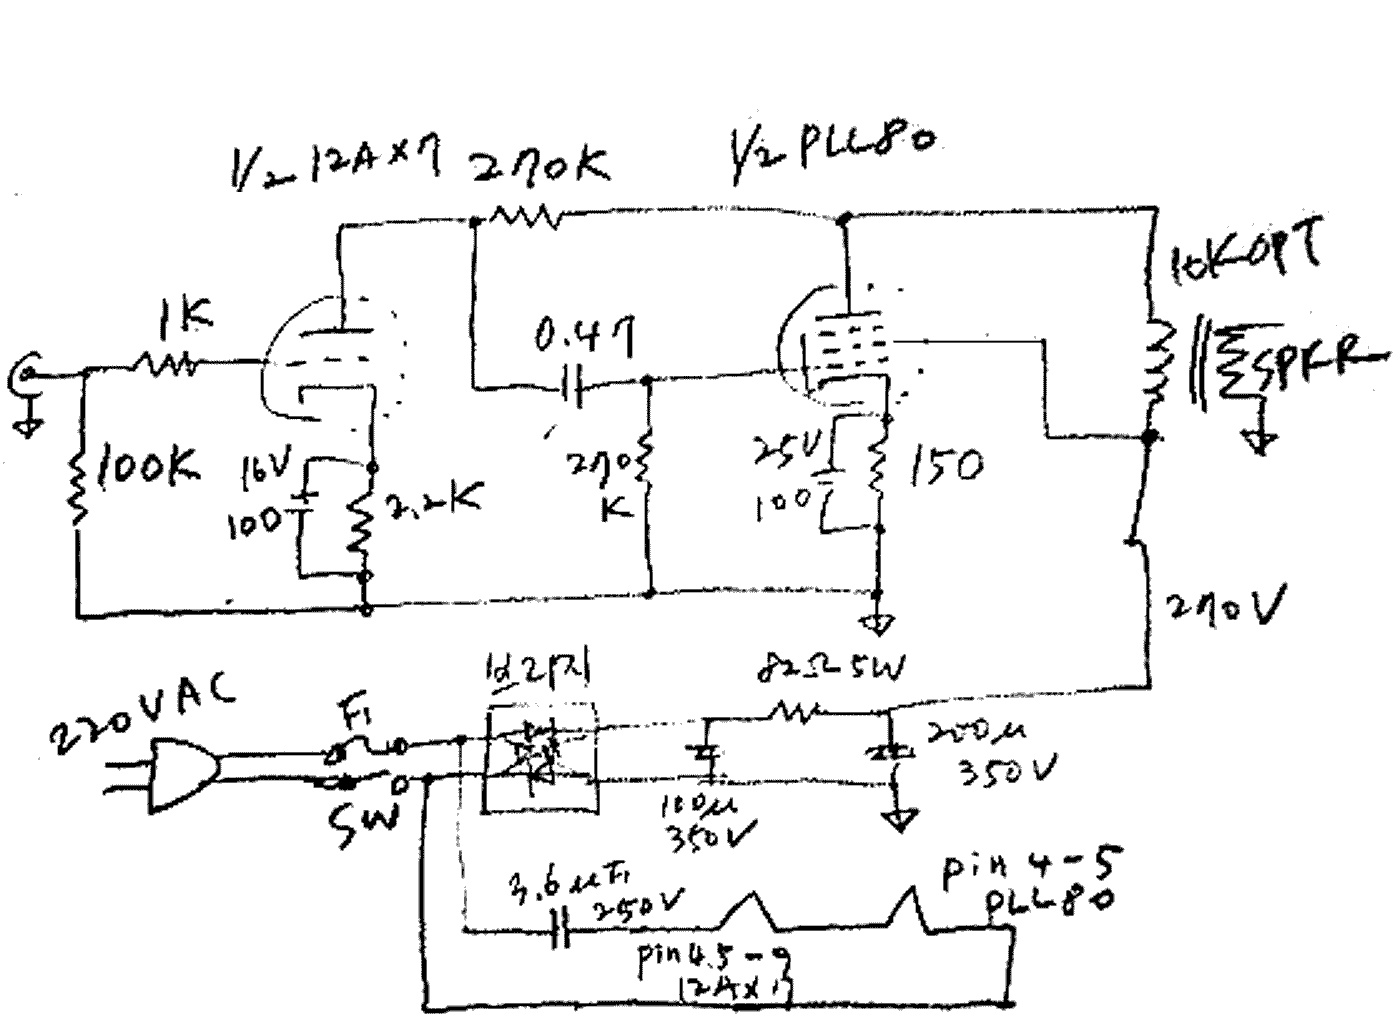 1/2 12AX7
270K
1/2 PLL80
10K OPT
1K
0.47
SPKR
100K
16V
100
2.2K
270
K
25V
100
150
270V
220VAC
F1
SW
82Ω 5W
100μ
350V
200μ
350V
3.6μF
250V
pin 4.5-9
12AX7
pin 4-5
PLL80